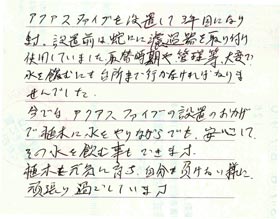 アクアスファイブを設置して3年目になり
ます。設置前は蛇口に濾過器を取り付け
使用していました。取替時期や管理等、大変で
水を飲むにも台所まで行かなければなりま
せんでした。
今では、アクアスファイブの設置のおかげ
で植木に水をやりながらでも、安心して、
その水を飲む事もできます。
植木も元気に育ち、自分も負けない様に
頑張り過ごしています